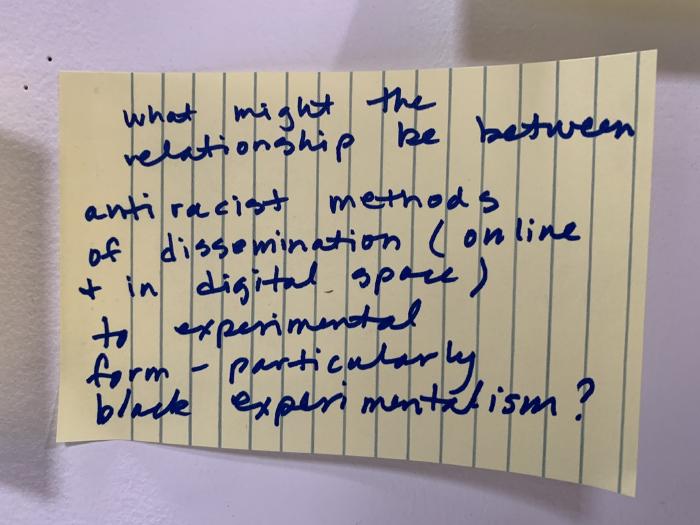 what might the
relationship be between
antiracist methods
of dissemination (online
+ in digital space)
to experimental
form - particularly
black experimentalism?